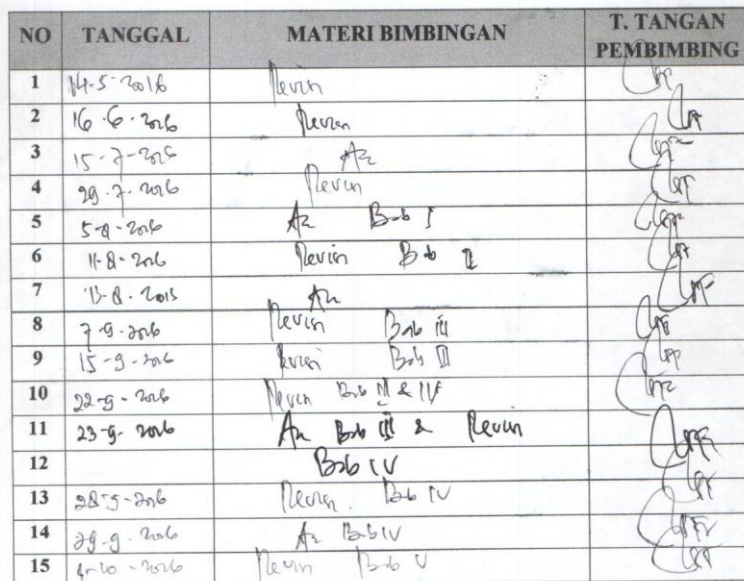 NO TANGGAL MATERI BIMBINGAN T. TANGAN PEMBIMBING
1 14-5-2016 Revisi
2 16-6-2016 Revisi
3 15-7-2016 Acc
4 29-7-2016 Revisi
5 5-8-2016 Acc Bab I
6 11-8-2016 Revisi Bab II
7 Acc
8 7-9-2016 Revisi Bab III
9 15-9-2016 Revisi Bab II
10 22-9-2016 Revisi Bab III & IV
11 23-9-2016 Acc Bab III & Revisi
12 Bab IV
13 28-9-2016 Revisi Bab IV
14 29-9-2016 Acc Bab IV
15 4-10-2016 Revisi Bab V